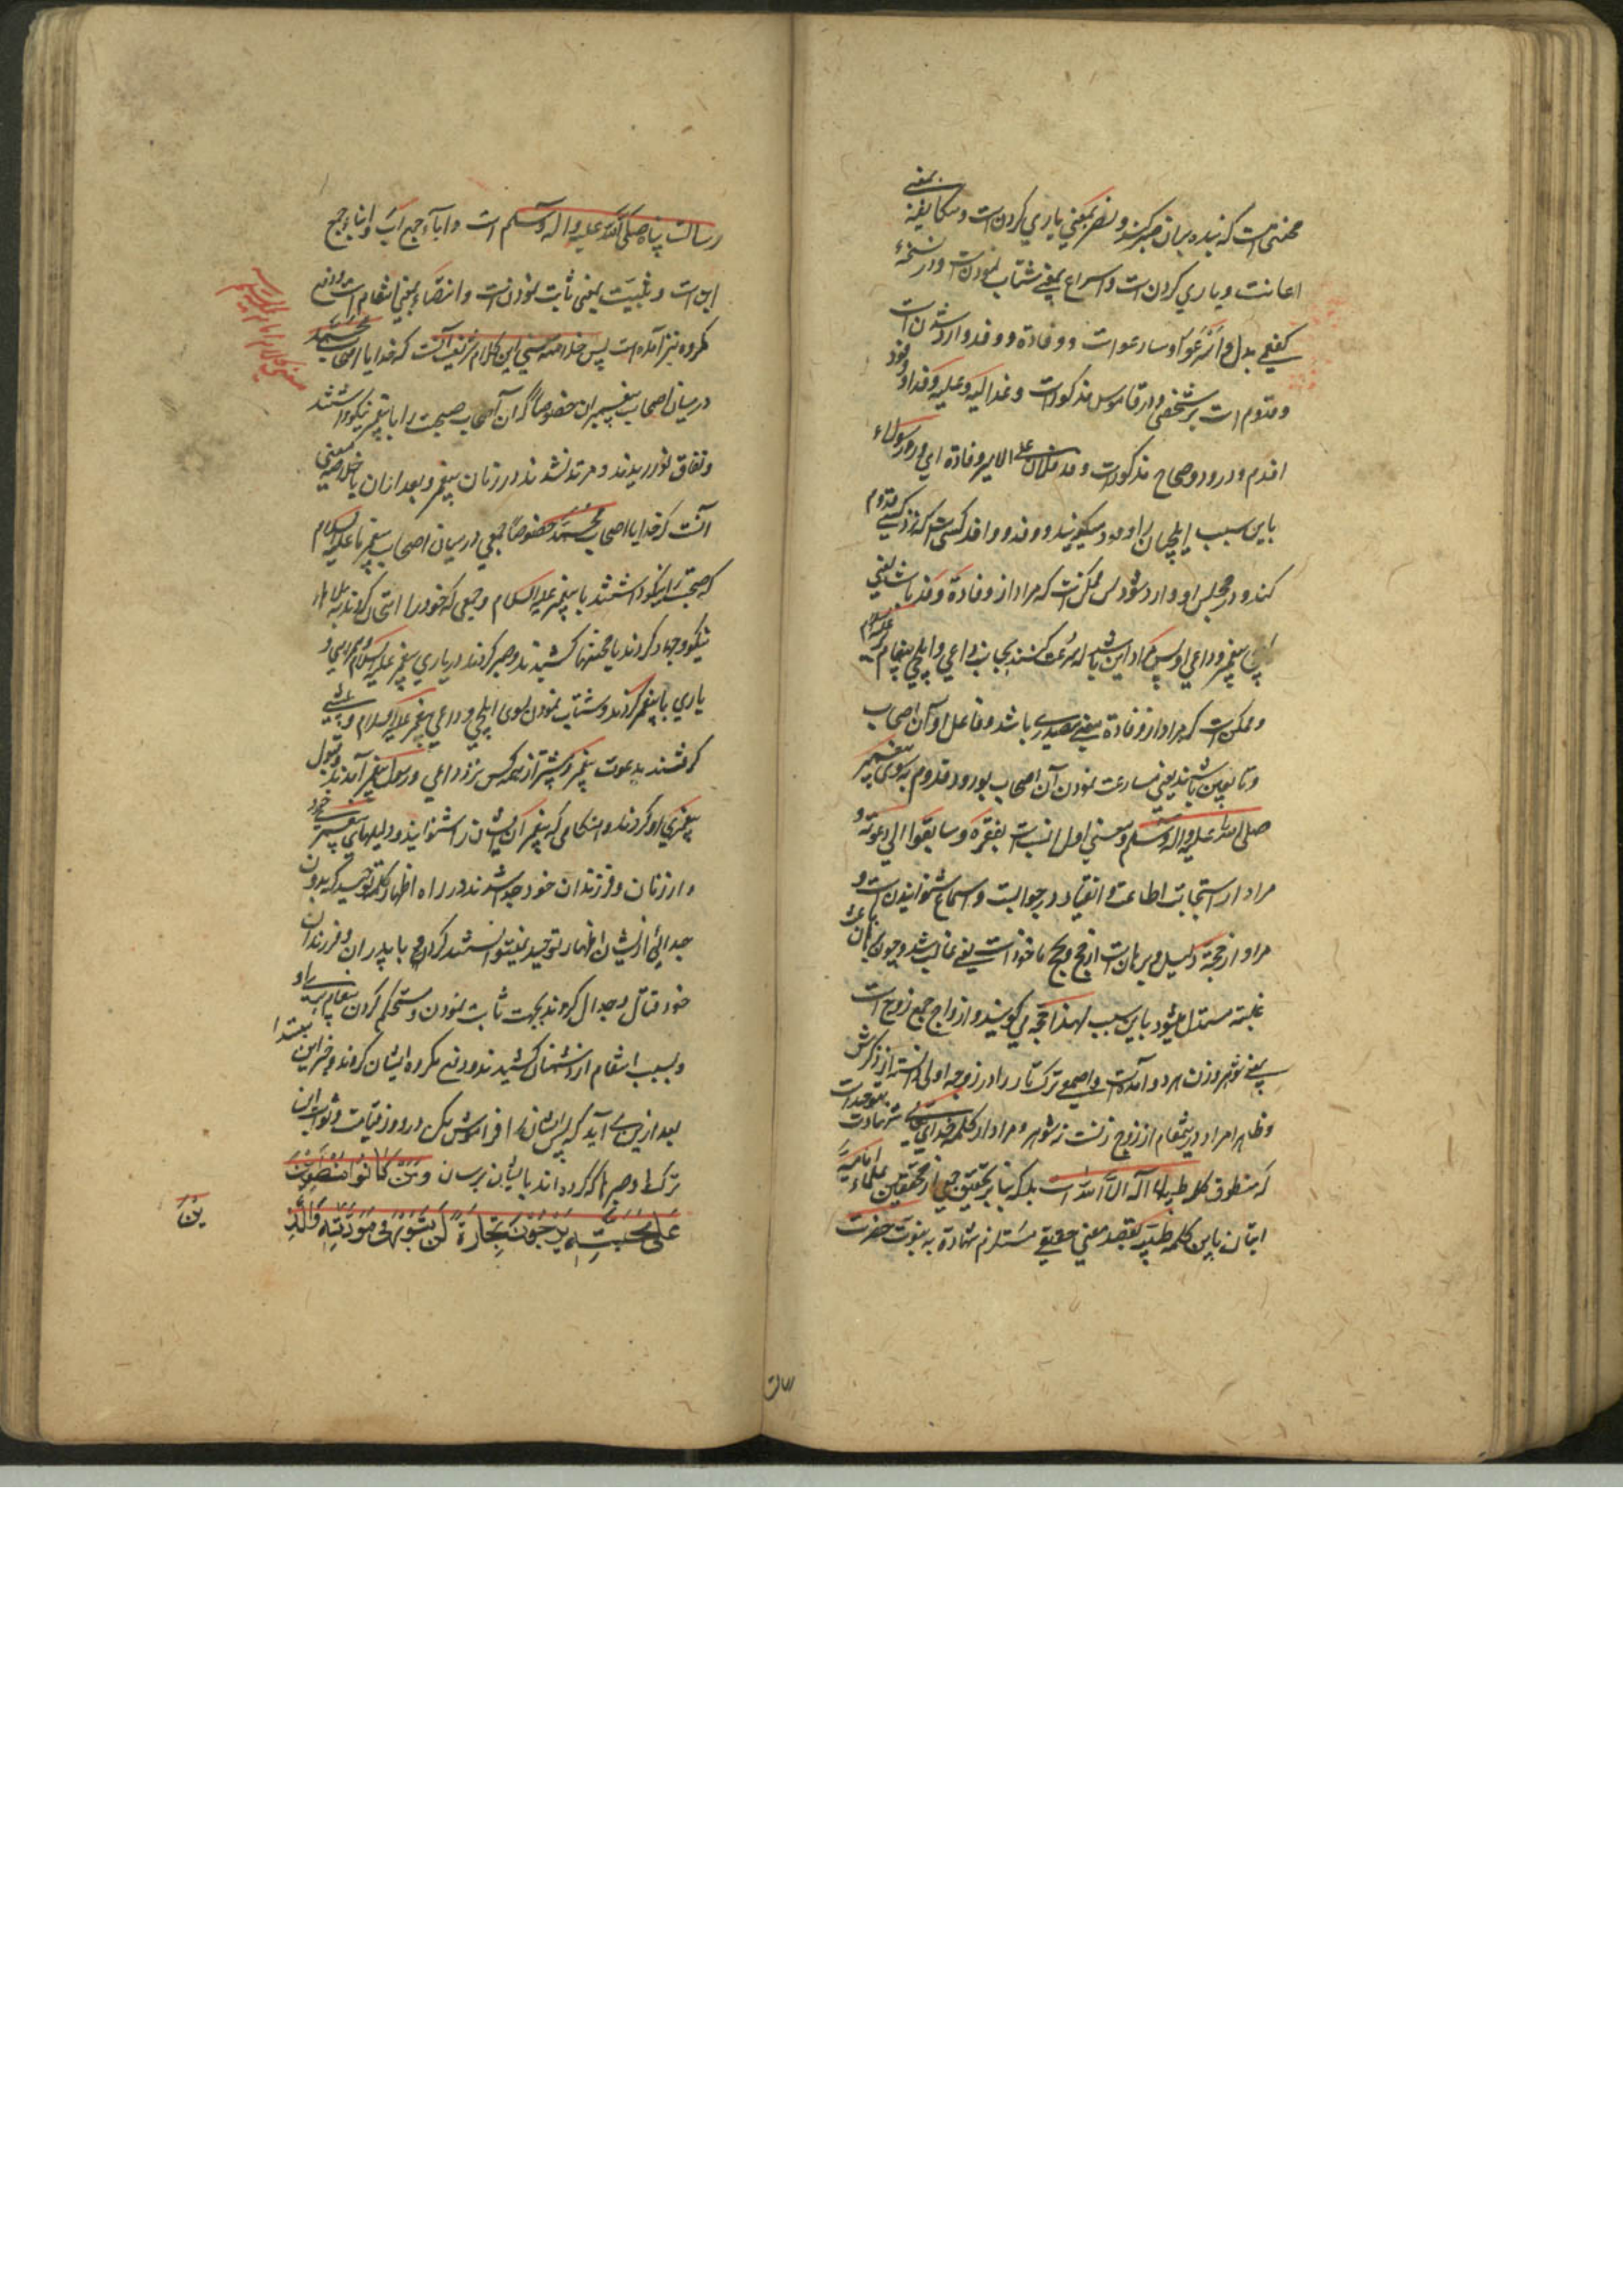 محنتی است که بنده بران صبر کند و نصر بمعنی یاری کردن است و مکانفه بمعنی
اعانت و یاری کردن است و اسراع بمعنی شتاب نمودن است و در نسخهٔ
کفعمی بدل و اسرعوا و سارعوا است و وفادة و وفد وارد شدن است
و قدوم است بر شخصی و در قاموس مذکور است وفد الیه و علیه وفدا و وفود
اقدم و ورد و در صحاح مذکور است وفد فلان علی الامیر وفادة ای ورد رسولاء
باین سبب ایلچیان را وفود میگویند و وفد و وافد کسی است که نزد کسی قدوم
کند و در مجلس او وارد شود پس ممکن است که مراد از وفادة وفد باشد یعنی
ایلچی پیغمبر و داعی او پس مراد این باشد که سرعت کنند بجانب داعی و ایلچی پیغام بر علیه السلام
و ممکن است که مراد از وفادة معنی مصدری باشد و فاعل او آن اصحاب
و تابعین باشند یعنی مسارعت نمودن آن اصحاب بورود و قدوم به سوی پیغمبر
صلی الله علیه و اله و سلم و معنی اول انسب است بفقره و سابقوا الی دعوته و
مراد از استجابت اطاعت و انقیاد در جواب است و اسماع شنوانیدن است و
مراد از حجة دلیل و برهان است از حج یحج ماخوذ است یعنی غالب شد و چون برهان باعث
غلبه مستدل میشود باین سبب لهذا حجه می گویند و ازواج جمع زوج است
بمعنی شوهر و زن هر دو آمده است و اصمعی ترک تا را در زوجه اولی دانسته از ذکرش
و ظاهرا مراد درینمقام از زوج زنست نه شوهر و مراد از کلمه خدای تعالی شهادت بتوحید است
که منطوق کلمه طیبه لا اله الا الله است بلکه بنا بر تحقیق جمعی از محققین علماء امامیه
اتیان باین کلمه طیبه بقصد معنی حقیقی مستلزم شهادة به نبوت حضرت
رسالت پناه صلی الله علیه و اله و سلم است و اباء جمع اب و ابناء جمع
ابن است و تثبیت بمعنی ثابت نمودن است و انتصار بمعنی انتقام است و دفع
مکروه نیز آمده است پس خلاصه معنی این کلام شریف آنست که خدایا اصحاب محمد
در میان اصحاب پیغمبران خصوصا گران آصحاب صحبت را با پیغمبر نیکو داشتند
و نفاق نورزیدند و مرتد نشدند در زمان پیغمبر و بعد از ان یا خلاصه معنی
آنست که خدایا اصحاب محمد خصوصا جمعی در میان اصحاب پیغمبر ما علیه السلام
که صحبت را نیکو داشتند با پیغمبر علیه السلام و جمعی که خود را امتحان کردند به بلاء
نیکو و جهاد کردند یا محنتها کشیدند و صبر کردند در یاری پیغمبر علیه السلام و همراهی و
یاری با پیغمبر کردند و شتاب نمودن بسوی ایلچی و داعی پیغمبر علیه السلام و پیشی
گرفتند بدعوت پیغمبر و پیشتر از همه کس نزد داعی و رسول پیغمبر آمدند و قبول
پیغمبری او کردند و هنگامی که پیغمبر آن ایشان را شنوانید دلیلهای پیغمبری خود
و از زنان و فرزندان خود جدا شدند در راه اظهار کلمه توحید که بدون
جدائی از ایشان اظهار توحید نمیتوانستند کرد و با پدران و فرزندان
خود قتال و جدال کردند بجهت ثابت نمودن و مستحکم کردن پیغامبری او
و بسبب انتقام از دشمنان کشیدند و دفع مکروه ایشان کردند و خبر این مبتدا
بعد ازین می آید که پس ایشان را فراموش مکن در روز قیامت و ثواب این
ترک و صبر را که کرده اند بایشان برسان وَمَنْ كَانُوا مُنْطَوِينَ
عَلَىٰ مَحَبَّتِهِ يَرْجُونَ تِجَارَةً لَنْ تَبُورَ فِي مَوَدَّتِهِ وَالَّذِ
ینَ